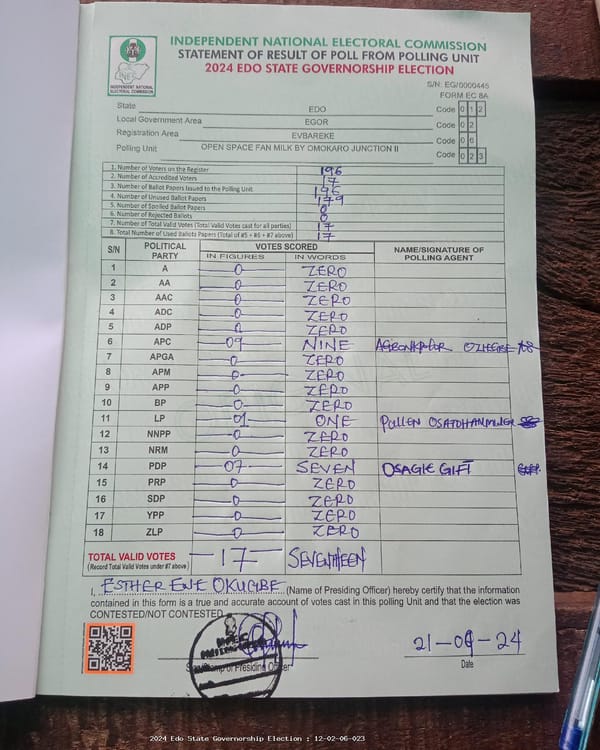 INDEPENDENT NATIONAL ELECTORAL COMMISSION
STATEMENT OF RESULT OF POLL FROM POLLING UNIT
2024 EDO STATE GOVERNORSHIP ELECTION
INDEPENDENT NATIONAL ELECTORAL COMMISSION
S/N: EG/0000445
FORM EC 8A
State EDO Code 0 1 2
Local Government Area EGOR Code 0 2
Registration Area EVBAREKE Code 0 6
Polling Unit OPEN SPACE FAN MILK BY OMOKARO JUNCTION II Code 0 2 3
1. Number of Voters on the Register 196
2. Number of Accredited Voters 17
3. Number of Ballot Papers Issued to the Polling Unit 196
4. Number of Unused Ballot Papers 179
5. Number of Spoiled Ballot Papers 0
6. Number of Rejected Ballots 0
7. Number of Total Valid Votes (Total Valid Votes cast for all parties) 17
8. Total Number of Used Ballots Papers (Total of #5 + #6 + #7 above) 17
S/N POLITICAL PARTY VOTES SCORED NAME/SIGNATURE OF POLLING AGENT
IN FIGURES IN WORDS
1 A 0 ZERO
2 AA 0 ZERO
3 AAC 0 ZERO
4 ADC 0 ZERO
5 ADP 0 ZERO
6 APC 09 NINE
7 APGA 0 ZERO
8 APM 0 ZERO
9 APP 0 ZERO
10 BP 0 ZERO
11 LP 01 ONE
12 NNPP 0 ZERO
13 NRM 0 ZERO
14 PDP 07 SEVEN OSAGIE GIFT
15 PRP 0 ZERO
16 SDP 0 ZERO
17 YPP 0 ZERO
18 ZLP 0 ZERO
TOTAL VALID VOTES 17 SEVENTEEN
(Record Total Valid Votes under #7 above)
I, ESTHER ENE OKUGBE (Name of Presiding Officer) hereby certify that the information
contained in this form is a true and accurate account of votes cast in this polling Unit and that the election was
CONTESTED/NOT CONTESTED
21-09-24
of Presiding Officer Date
2024 Edo State Governorship Election : 12-02-06-023